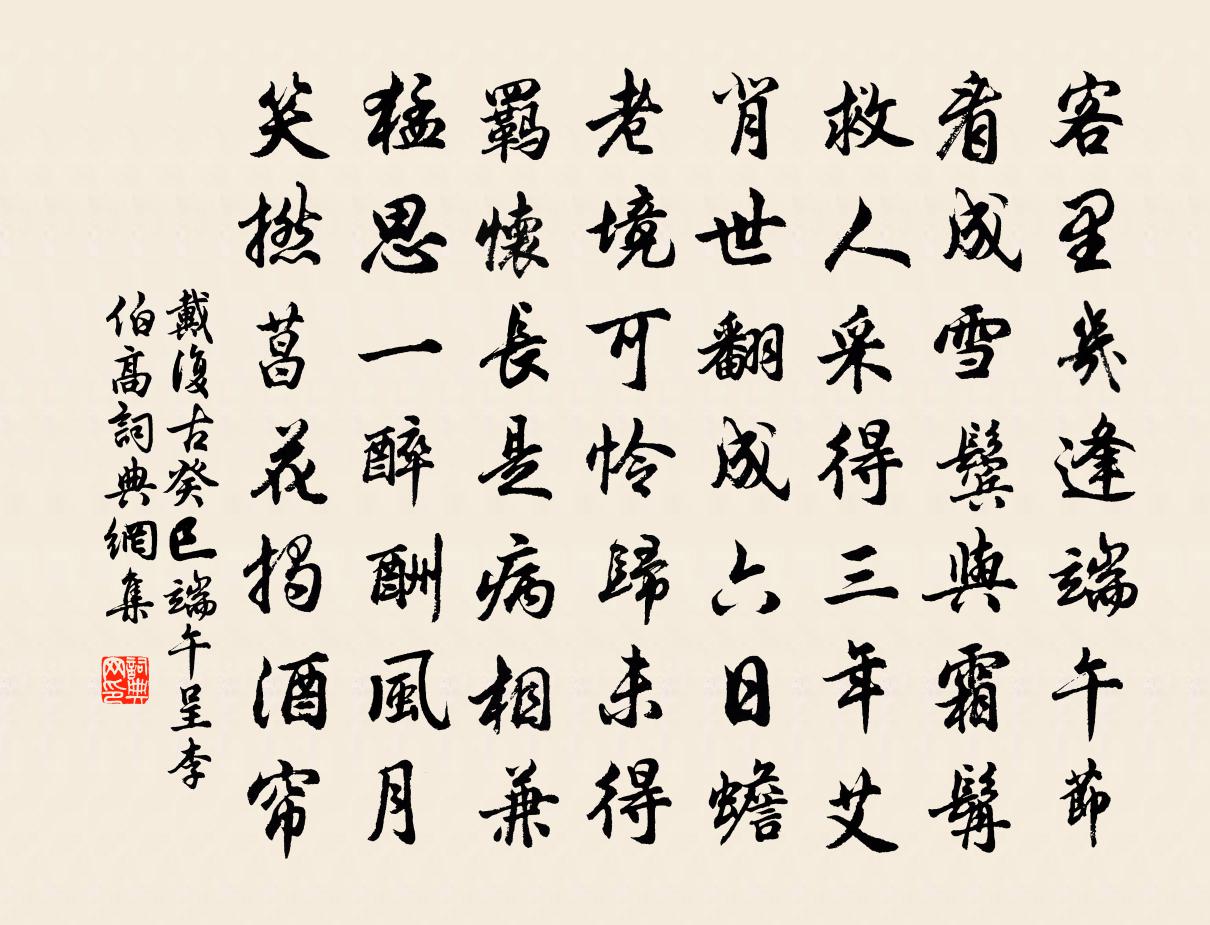 客里幾逢端午節
看成雪鬢與霜髯
救人采得三年艾
背世翻成六日蟾
老境可怜歸未得
羈懷長是病相兼
猛思一醉酬風月
笑撚菖花揭酒帘
戴復古癸巳端午呈李
伯高詞典網集
詞典网印